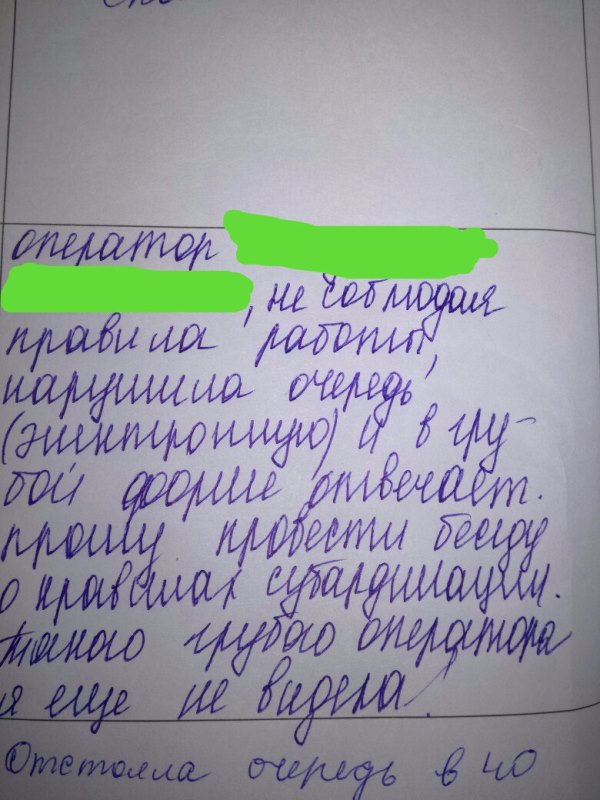 оператор
, не соблюдая
правила работы,
нарушила очередь
(электронную) и в гру-
бой форме отвечает.
прошу провести беседу
о правилах субардинации.
такого грубого оператора
я еще не видела!
Отстояла очередь в 40